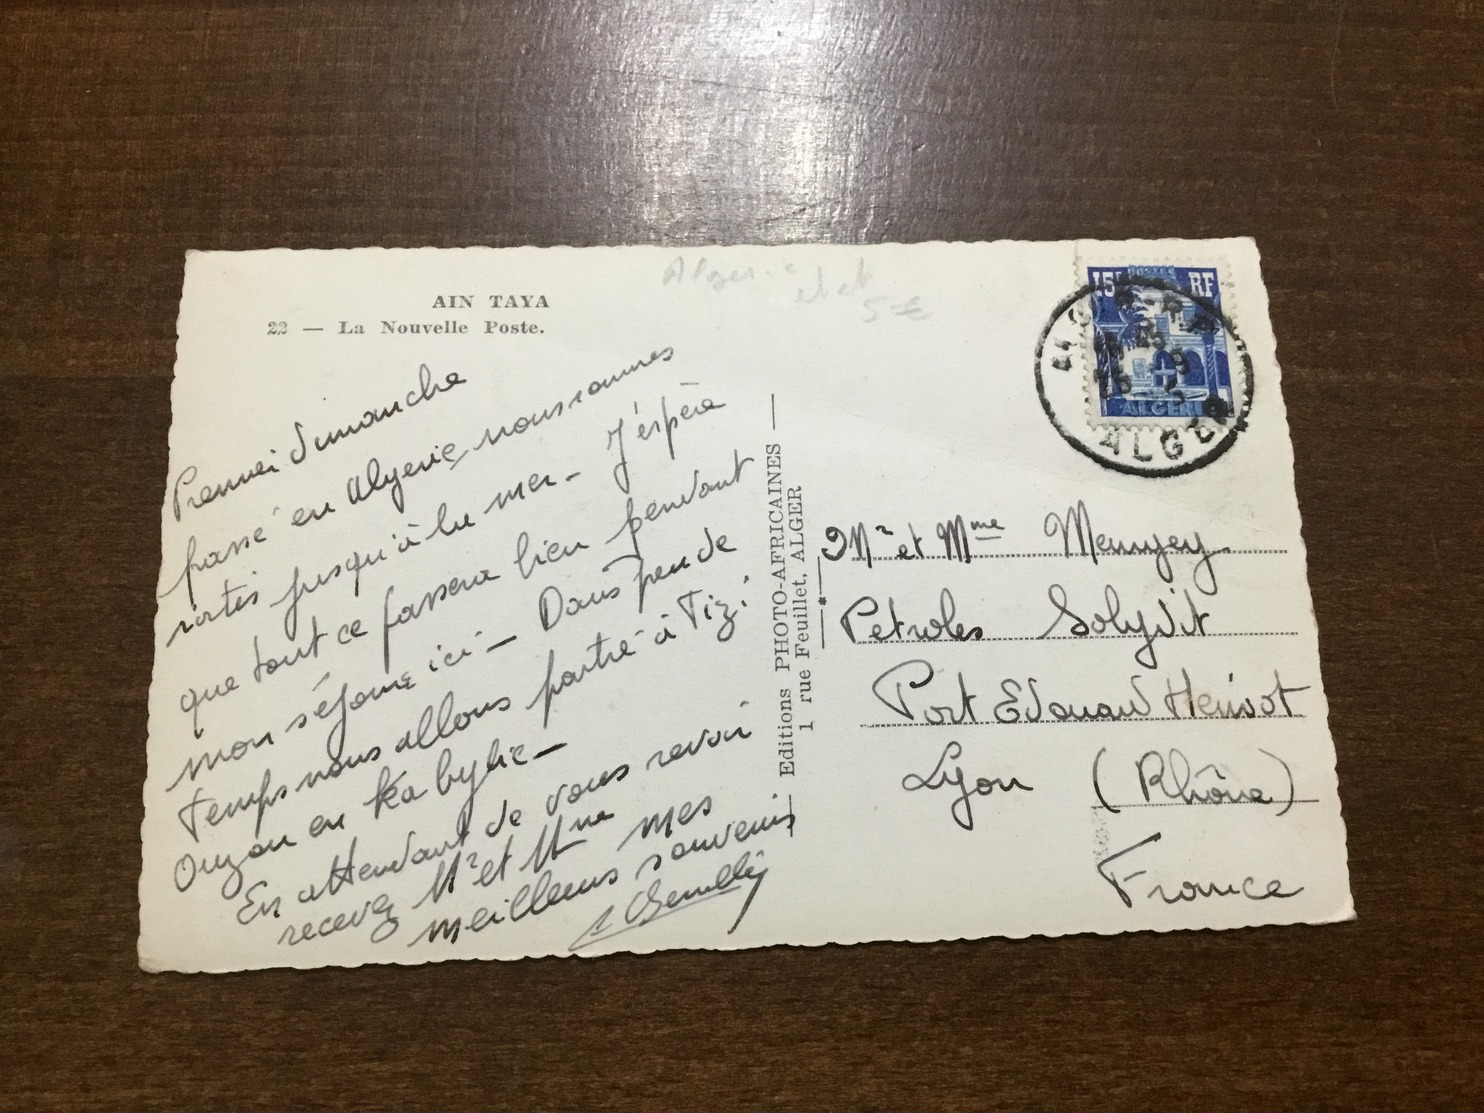 AIN TAYA
22 — La Nouvelle Poste.
Algerie
etat
5 €
Premier dimanche
passé en Algerie, nous sommes
sortis jusqu'à la mer - J'espère
que tout ce passera bien pendant
mon séjour ici - Dans peu de
temps nous allons partir à Tizi
Ouzou en Kabylie -
En attendant de vous revoir
recevez Mr et Mme mes
meilleurs souvenirs
Editions PHOTO-AFRICAINES
1 rue Feuillet, ALGER
15F POSTES RF
ALGERIE
ALGER
Mr et Mme
Petroles Solydit
Port Edouard Herriot
Lyon (Rhône)
France